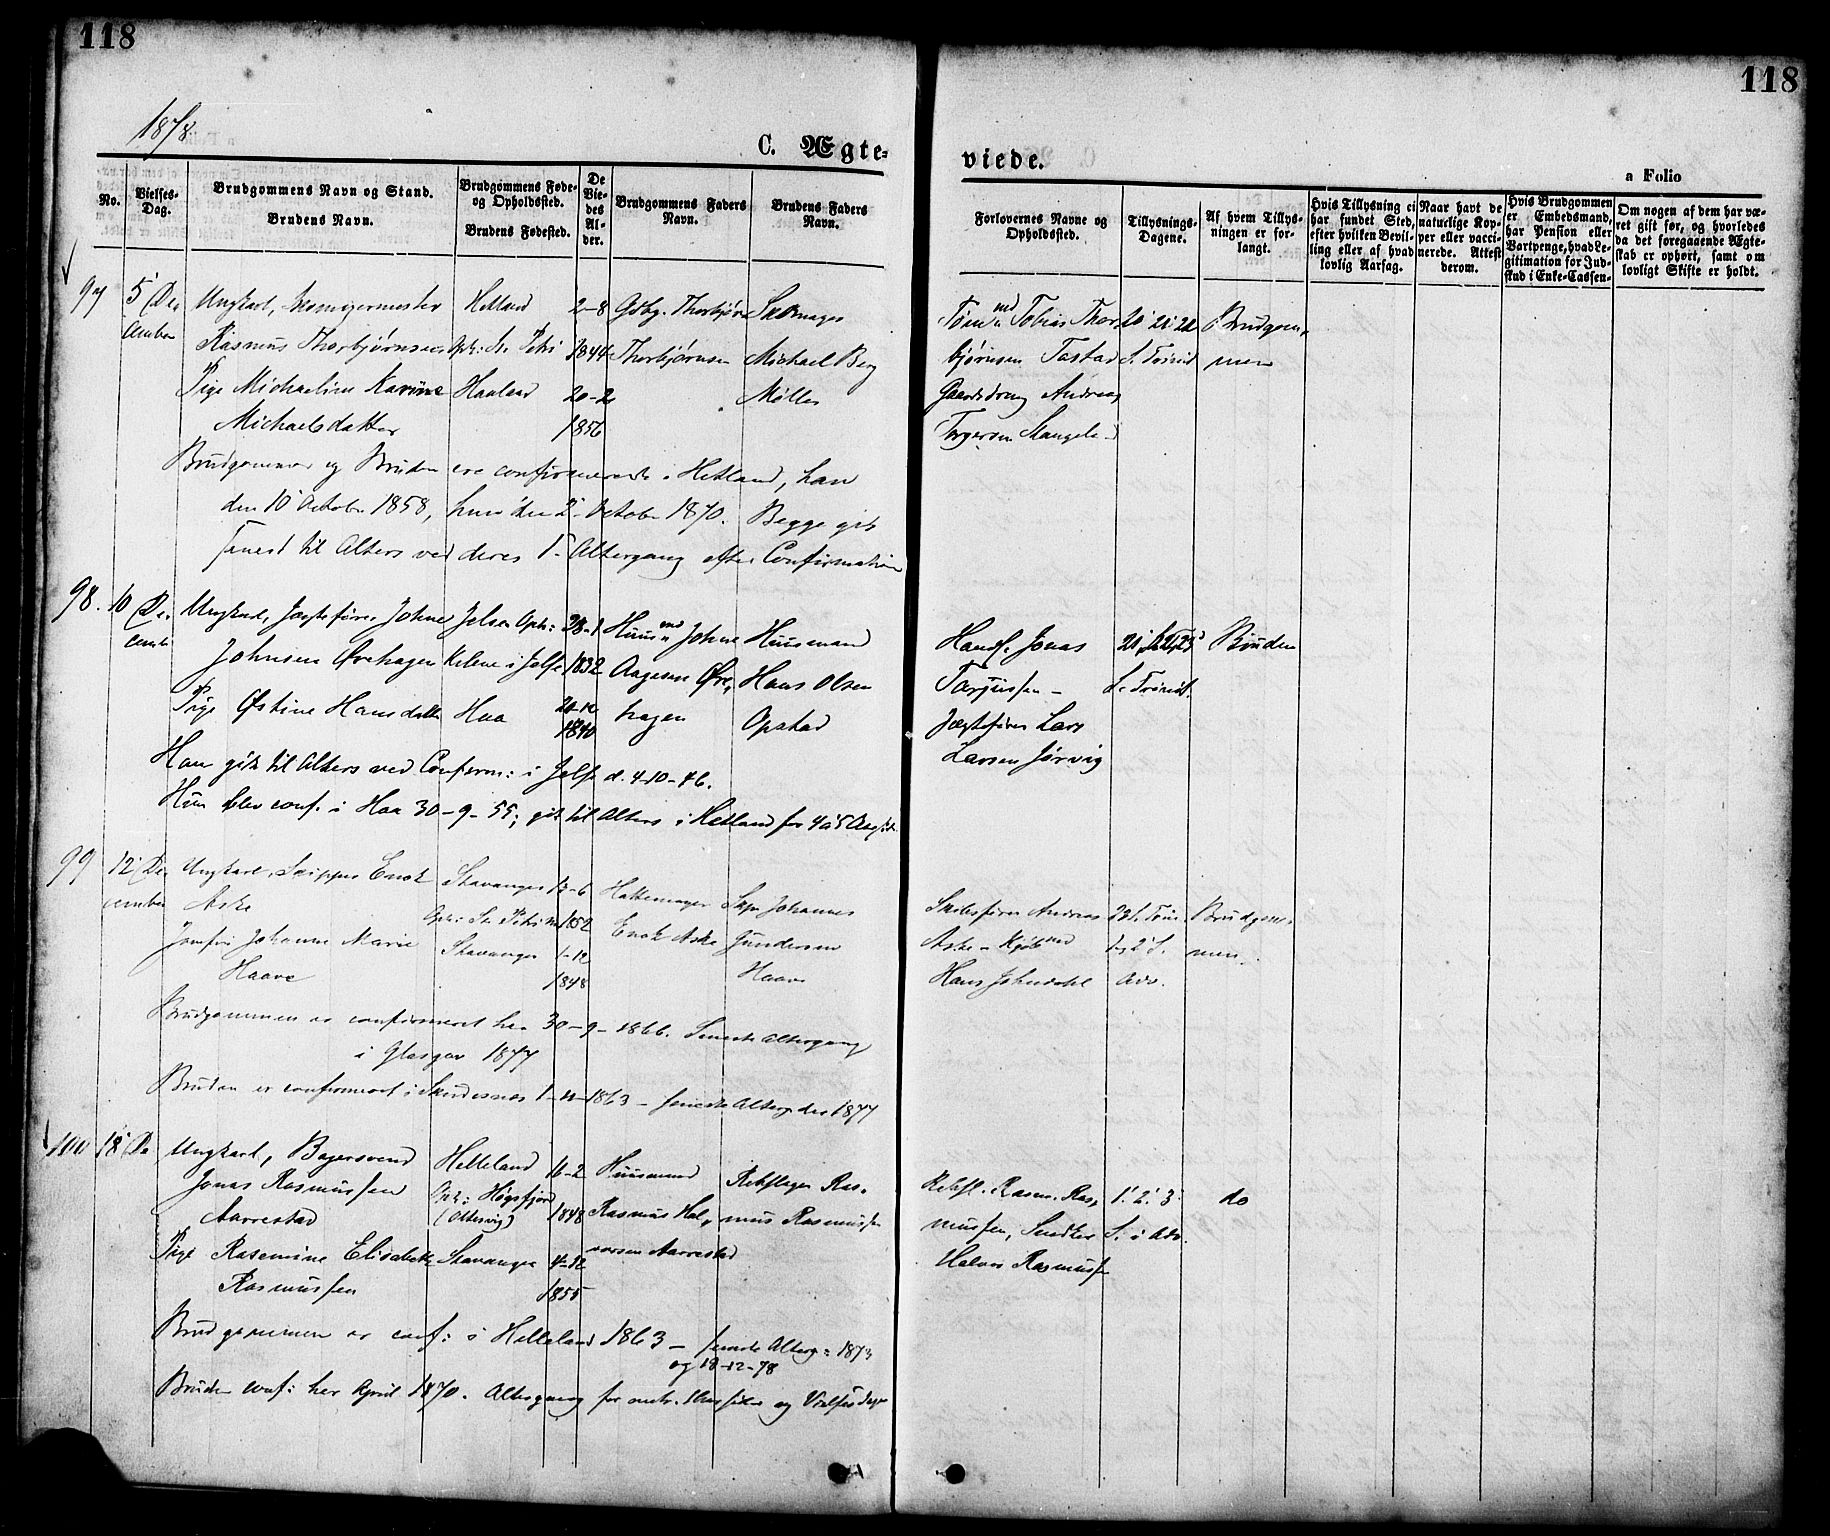 118
118
1878
C. Ægte-
viede.
a Folio
No.
Vielses-
Dag.
Brudgommens Navn og Stand.
Brudens Navn.
Brudgommens Føde-
og Opholdssted.
Brudens Fødested.
De
Vie-
des
Al-
der.
Brudgommens Faders
Navn.
Brudens Faders
Navn.
Forlovernes Navne og
Opholdssted.
Tillysnings-
Dagene.
Af hvem Tillys-
ningen er for-
langt.
Hvis Tillysning ei
har fundet Sted,
efter hvilken Bevil-
ling eller af hvad
lovlig Aarsag.
Naar havt de
naturlige Kop-
per eller vacci-
nerede. Attest
derom.
Hvis Brudgommen
er Embedsmand,
har Pension eller
Vartpenge, hvad Le-
gitimation for Ind-
skud i Enke-Cassen.
Om nogen af dem har væ-
ret gift før, og hvorledes
da det foregaaende Ægte-
skab er ophørt, samt om
lovligt Skifte er holdt.
97 5 De-
cember
Ungkarl,
Rasmus Thorbjørnsen
Pige Michaeline Karine
Michaelsdatter
Hetland
Oph: St. Petri
Haaland
2-8
1844
20-2
1856
Gdbg. Thorbjørn
Thorbjørnsen
Skomager
Michael Berg
Møller
Tømmd Tobias Thor-
bjørnsen Tastad
Andreas
Torgersen
20 21 22
S. Trinit
Brudgom-
men
Brudgommen og Bruden ere confirmerede i Hetland, han
den 10 October 1858, hun den 2 October 1870. Begge gik
senest til Alters ved deres 1 Altergang efter Confirmation
98. 10 De-
cember
Ungkarl, Jægtefører Johne
Johnsen Øvrehagen
Pige Østine Hansdatter
Jelse Oph:
i Jelse
Haa
28-1
1832
1840
Huusmd Johne
Aagesen Øvre-
hagen
Huusmand
Hans Olsen
Opstad
Handl. Jonas
Tarjussen -
Jægtefører Lars
Larsen Jørvig
S. Trinit.
Bruden
Han gik til Alters ved Conferm: i Jelse d. 4-10-46.
Hun blev conf. i Haa 30-9-55; gik til Alters i Hetland for 4 a 5 Aar siden
99 12 De-
cember
Ungkarl, Skipper Enok
Aske
Jomfru Johanne Marie
Haave
Stavanger
Oph: St. Petri
Stavanger
1852
1-12
1848
Hattemager
Enok Aske
Skpr Johannes
Gundersen
Haave
Skibsfører Andreas
Aske -
Hans
1 og 2 S.
Adv.
Brudgom-
men
Brudgommen er confirmeret her 30-9-1866. Seneste Altergang
i Glasgow 1877
Bruden er confirmeret i Skudesnes 1863 - seneste Alterg. der 1877
100 18 De
Ungkarl, Bagersvend
Jonas Rasmussen
Aarrestad
Pige Rasmine Elisabeth
Rasmussen
Helleland
Oph: Høgsfjord
Stavanger
16-2
1848
4-12
1855
Huusmand
Rasmus Hal-
vorsen Aarrestad
Rebslager Ras-
mus Rasmussen
Rebsl. Rasm. Ras-
mussen, Snedker
Halvor Rasmussen
1. 2. 3
S. i Adv.
do
Brudgommen er conf: i Helleland 1863 - seneste Alterg: 1873
og 18-12-78
Bruden conf: her April 1870. Altergang for Aar siden og Vielsesdagen